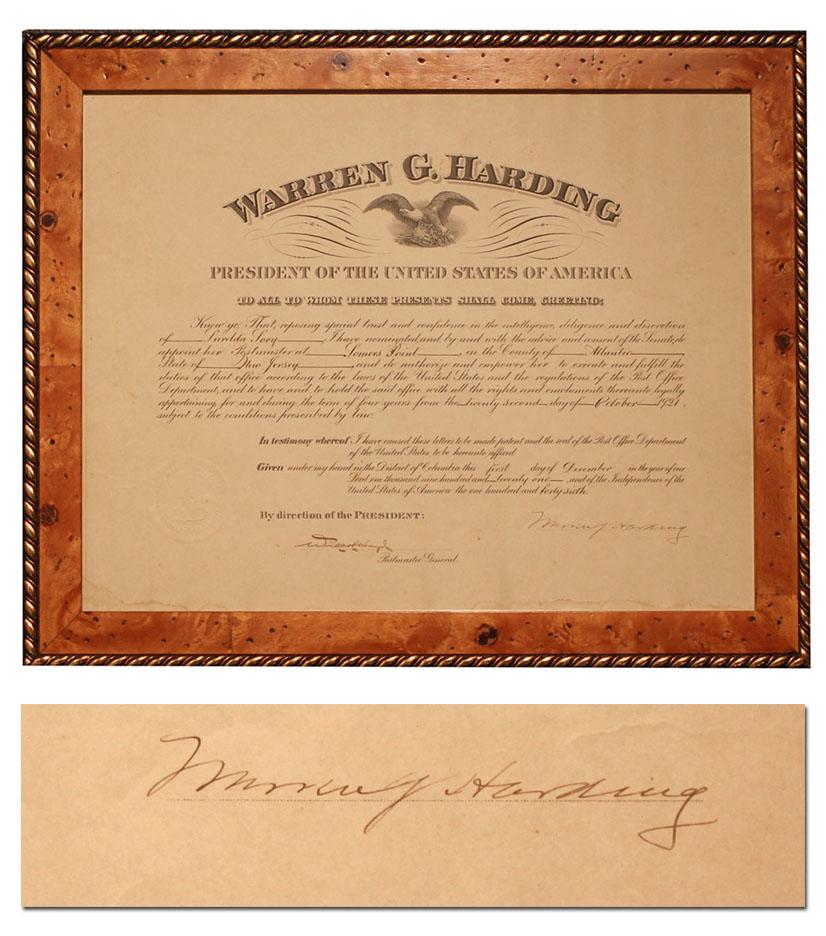 WARREN G. HARDING
PRESIDENT OF THE UNITED STATES OF AMERICA
TO ALL TO WHOM THESE PRESENTS SHALL COME, GREETING:
Know ye, That, reposing special trust and confidence in the intelligence, diligence and discretion
of I have nominated, and by and with the advice and consent of the Senate, do
appoint her Postmaster at Somers Point, in the County of Atlantic
State of New Jersey, and do authorize and empower her to execute and fulfill the
duties of that office according to the laws of the United States and the regulations of the Post Office
Department, and to have and to hold the said office with all the rights and emoluments thereunto legally
appertaining, for and during the term of four years from the twenty second day of October 1921,
subject to the conditions prescribed by law.
In testimony whereof I have caused these letters to be made patent and the seal of the Post Office Department
of the United States to be hereunto affixed.
Given under my hand in the District of Columbia this first day of December in the year of our
Lord one thousand nine hundred and twenty one, and of the Independence of the
United States of America the one hundred and forty sixth.
By direction of the PRESIDENT:
Warren G Harding
Postmaster General.
Warren G Harding